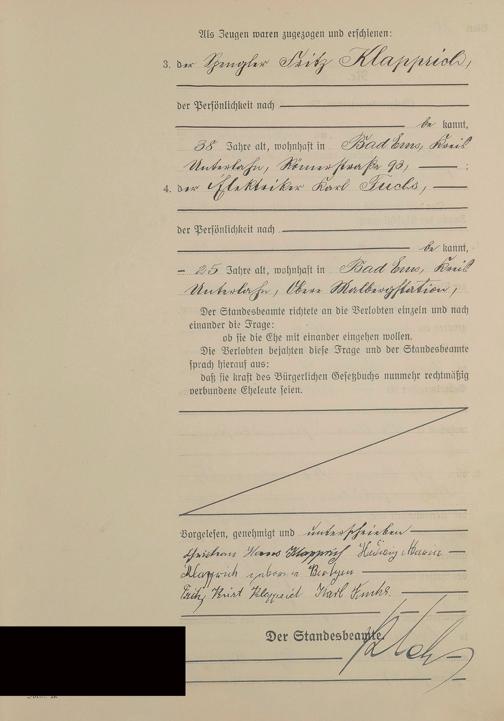 Als Zeugen waren zugezogen und erschienen:
3. der Spengler Fritz Klapprich,
der Persönlichkeit nach
be kannt,
38 Jahre alt, wohnhaft in Bad Ems, Kreis
Unterlahn, Römerstraße 93, ;
4. der Elektriker Karl Fuchs,
der Persönlichkeit nach
be kannt,
25 Jahre alt, wohnhaft in Bad Ems, Kreis
Unterlahn, Obere Malbergstation,
Der Standesbeamte richtete an die Verlobten einzeln und nach
einander die Frage:
ob sie die Ehe mit einander eingehen wollen.
Die Verlobten bejahten diese Frage und der Standesbeamte
sprach hierauf aus:
daß sie kraft des Bürgerlichen Gesetzbuchs nunmehr rechtmäßig
verbundene Eheleute seien.
Vorgelesen, genehmigt und unterschrieben
Christian Klapprich Hedwig
Klapprich geborene
Fritz Klapprich Karl Fuchs.
Der Standesbeamte.